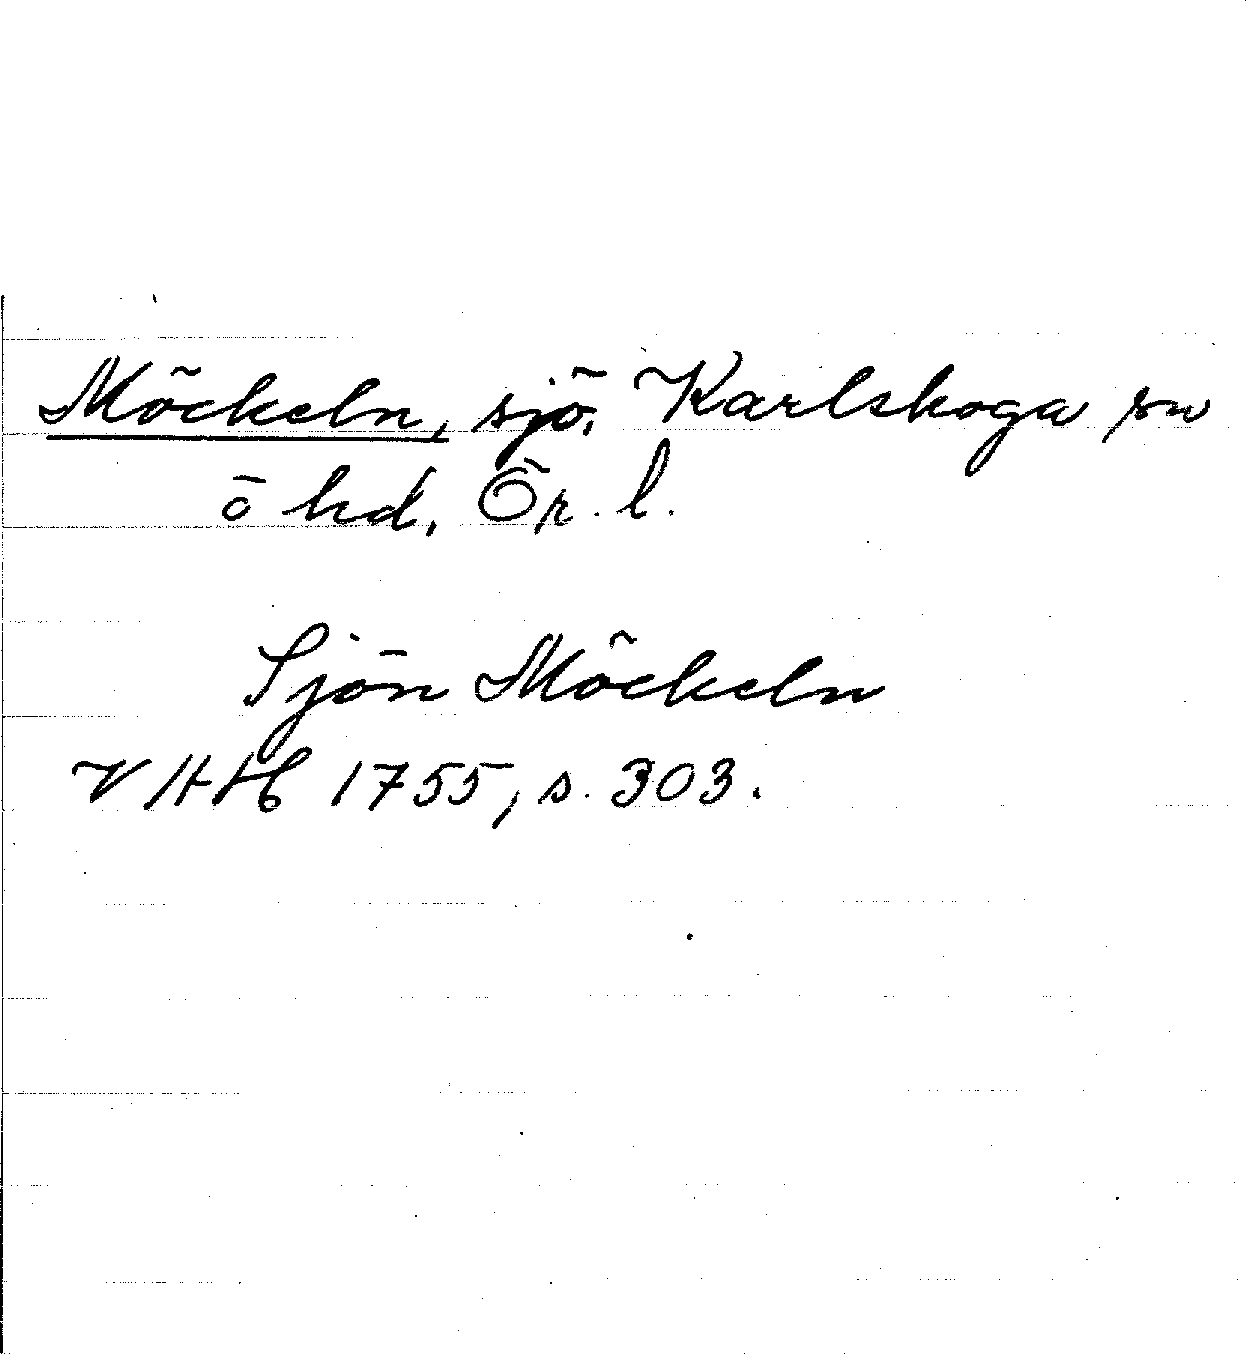 Möckeln, sjö, Karlskoga sn
ö hd, Ör. l.
Sjön Möckeln
1755, s. 303.